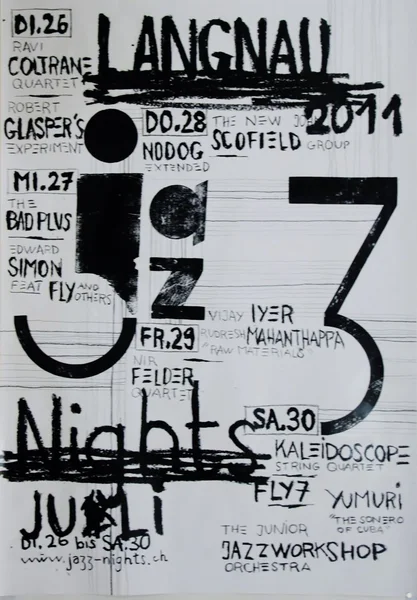 DI.26
LANGNAU
RAVI
COLTRANE
QUARTET
2011
ROBERT
GLASPER'S
EXPERIMENT
DO.28
THE NEW JOHN
SCOFIELD
GROUP
NODOG
EXTENDED
MI.27
THE
BAD PLUS
EDWARD
SIMON
FEAT FLY AND
OTHERS
jazz
FR.29
VIJAY IYER
RUDRESH MAHANTHAPPA
"RAW MATERIALS"
NIR
FELDER
QUARTET
Nights
SA.30
KALEiDOSCOPE
STRING QUARTET
FLY7
YUMURi
"THE SONERO
OF CUBA"
JULi
THE JUNIOR
JAZZWORKSHOP
ORCHESTRA
DI.26 bis SA.30
www.jazz-nights.ch